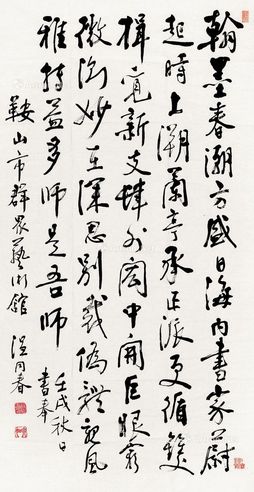 翰墨春潮方盛日海内书家蔚
起时上溯兰亭承正派更循
楫宽新支肆外宏中开巨眼
微沟妙在深思别裁伪体亲风
雅转益多师是吾师
壬戌秋日
书奉
鞍山市群众艺术馆 同春